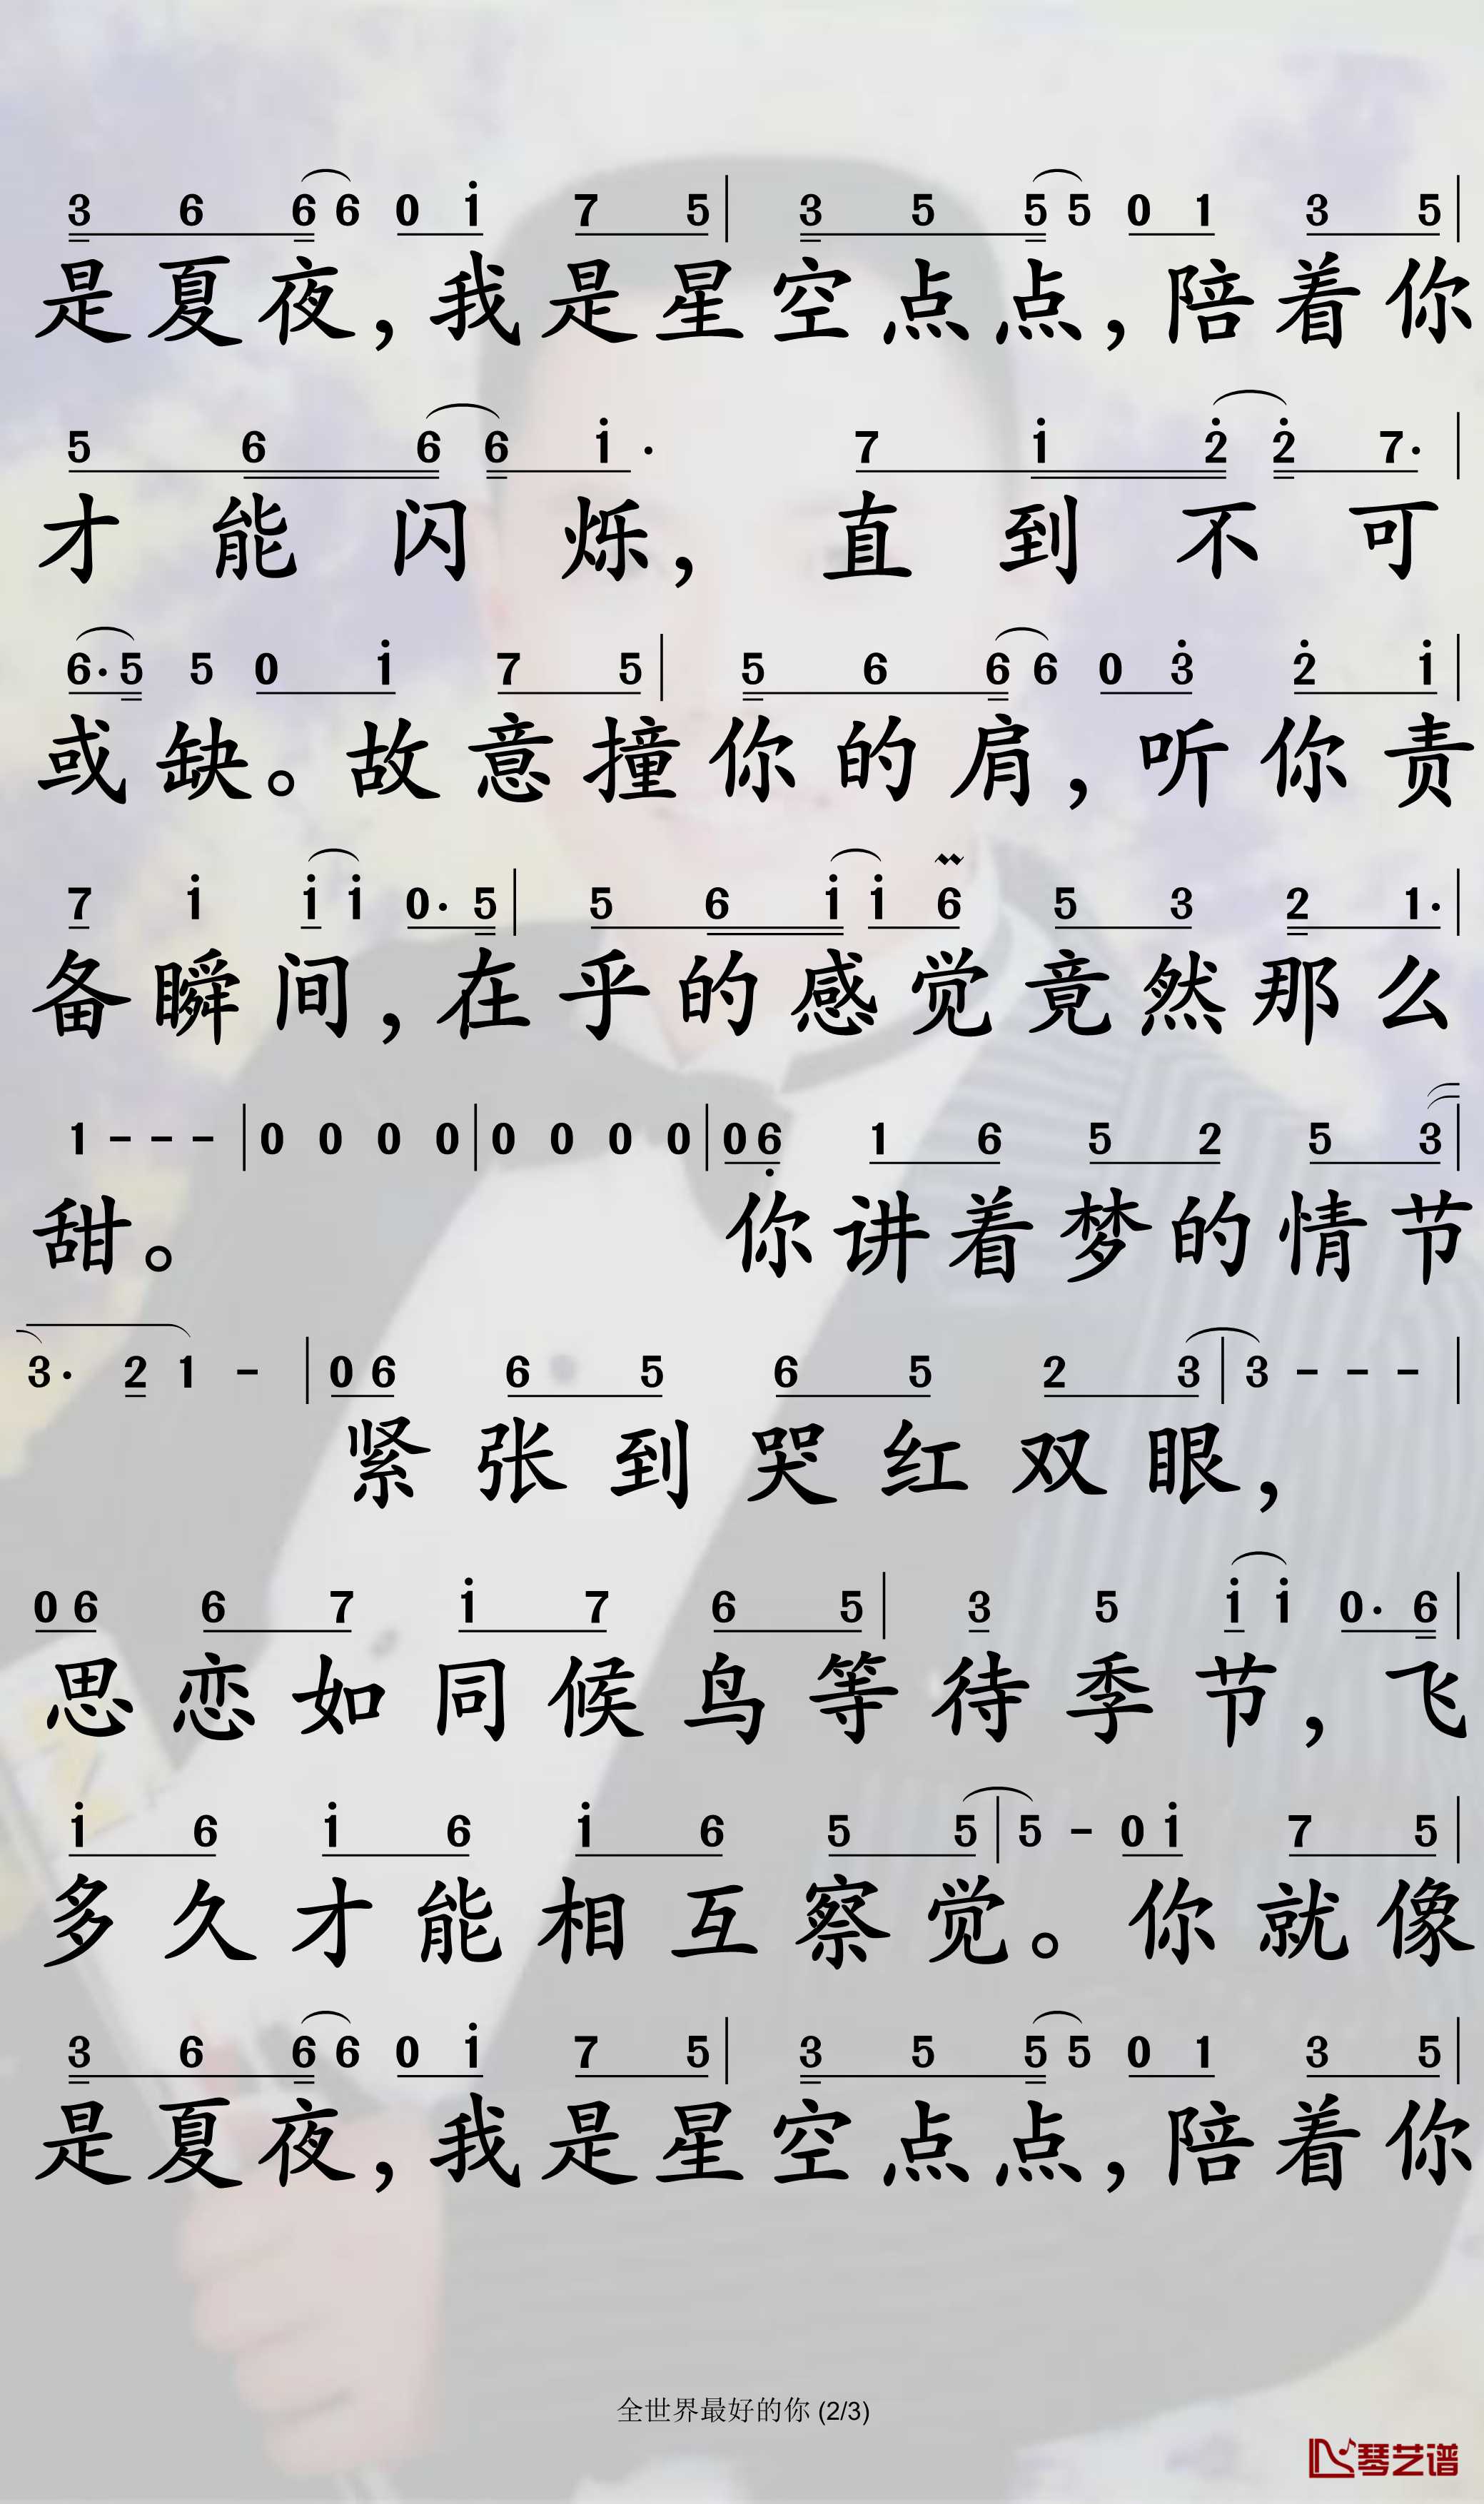 3 6 6 6 0 i 7 5 | 3 5 5 5 0 1 3 5 |
是夏夜，我是星空点点，陪着你
5 6 6 6 i· 7 i 2̇ 2̇ 7· |
才能闪烁，直到不可
6·5 5 0 i 7 5 | 5 6 6 6 0 3̇ 2̇ i |
或缺。故意撞你的肩，听你责
7 i i i 0· 5 | 5 6 i i 6 5 3 2 1· |
备瞬间，在乎的感觉竟然那么
1 - - - | 0 0 0 0 | 0 0 0 0 | 0 6̣ 1 6 5 2 5 3 |
甜。你讲着梦的情节
3· 2 1 - | 0 6 6 5 6 5 2 3 | 3 - - - |
紧张到哭红双眼，
0 6 6 7 i 7 6 5 | 3 5 i i 0· 6 |
思恋如同候鸟等待季节，飞
i 6 i 6 i 6 5 5 | 5 - 0 i 7 5 |
多久才能相互察觉。你就像
3 6 6 6 0 i 7 5 | 3 5 5 5 0 1 3 5 |
是夏夜，我是星空点点，陪着你
全世界最好的你 (2/3)
琴艺谱